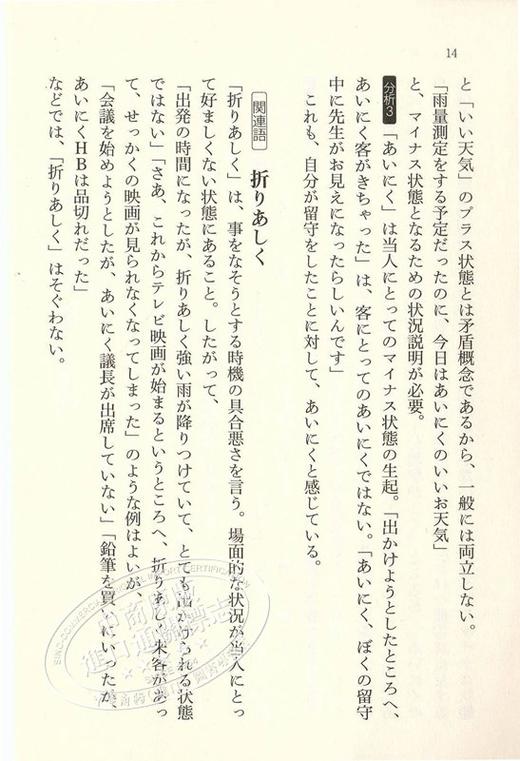 14
と「いい天気」のプラス状態とは矛盾概念であるから、一般には両立しない。
「雨量測定をする予定だったのに、今日はあいにくのいいお天気」
と、マイナス状態となるための状況説明が必要。
分析3 「あいにく」は当人にとってのマイナス状態の生起。「出かけようとしたところへ、
あいにく客がきちゃった」は、客にとってのあいにくではない。「あいにく、ぼくの留守
中に先生がお見えになったらしいんです」
これも、自分が留守をしたことに対して、あいにくと感じている。
関連語 折りあしく
「折りあしく」は、事をなそうとする時機の具合悪さを言う。場面的な状況が当人にとっ
て好ましくない状態にあること。したがって、
「出発の時間になったが、折りあしく強い雨が降りつけていて、とても出かけられる状態
ではない」「さあ、これからテレビ映画が始まるというところへ、折りあしく来客があっ
て、せっかくの映画が見られなくなってしまった」のような例はよいが、
「会議を始めようとしたが、あいにく議長が出席していない」「鉛筆を買いにいったが、
あいにくHBは品切れだった」
などでは、「折りあしく」はそぐわない。